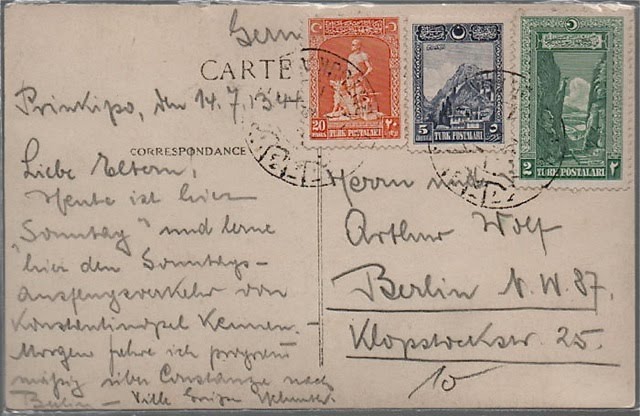 Germ
CARTE
Prinkipo, den 14.7.1344
CORRESPONDANCE
Liebe Eltern,
Heute ist hier
"Sonntag" und lerne
hier den Sonntags-
ausflugsverkehr von
Konstantinopel kennen. –
Morgen fahre ich programm
mäßig über Constanza nach
Berlin – Viele Grüße
20 ٢٠
TURK POSTALARI
5 ٥
TURK POSTALARI
2 ٢
TURK POSTALARI
Herrn
Arthur Wolf
Berlin N.W. 87.
Klopstockstr. 25.
10